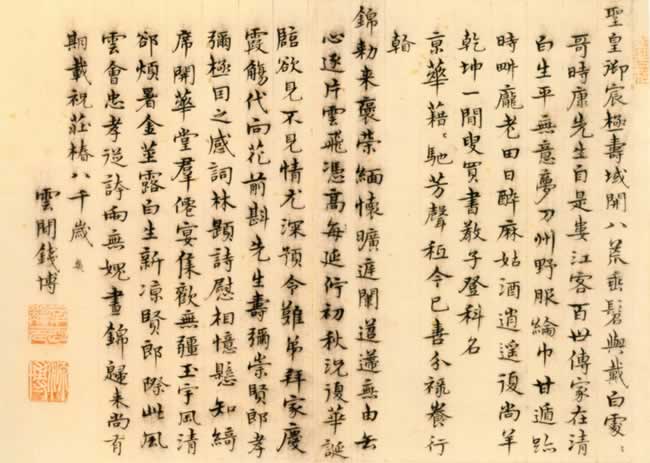 聖皇御宸極壽域開八荒垂髫與戴白熙〻
哥時康先生自是婁江客百世傳家在清
白生平無意夢刀州野服綸巾甘遁跡
時畊龐老田日醉麻姑酒逍遙復尚羊
乾坤一閒叟買書教子登科名
京華藉〻馳芳聲秪今已喜分祿養行
看
錦勅來褒榮緬懷曠遐闊道遠無由去
心逐片雲飛憑高每延佇初秋況復華誕
臨欲見不見情尤深預令難弟拜家慶
霞觴代向花前斟先生壽彌崇賢郎孝
彌極因之感詞林題詩慰相憶懸知綺
席開華堂羣僊宴集歡無疆玉宇風清
卻煩暑金莖露白生新凉賢郎際此風
雲會忠孝從誇兩無媿晝錦歸來尚有
期載祝莊椿八千歲
雲間錢博